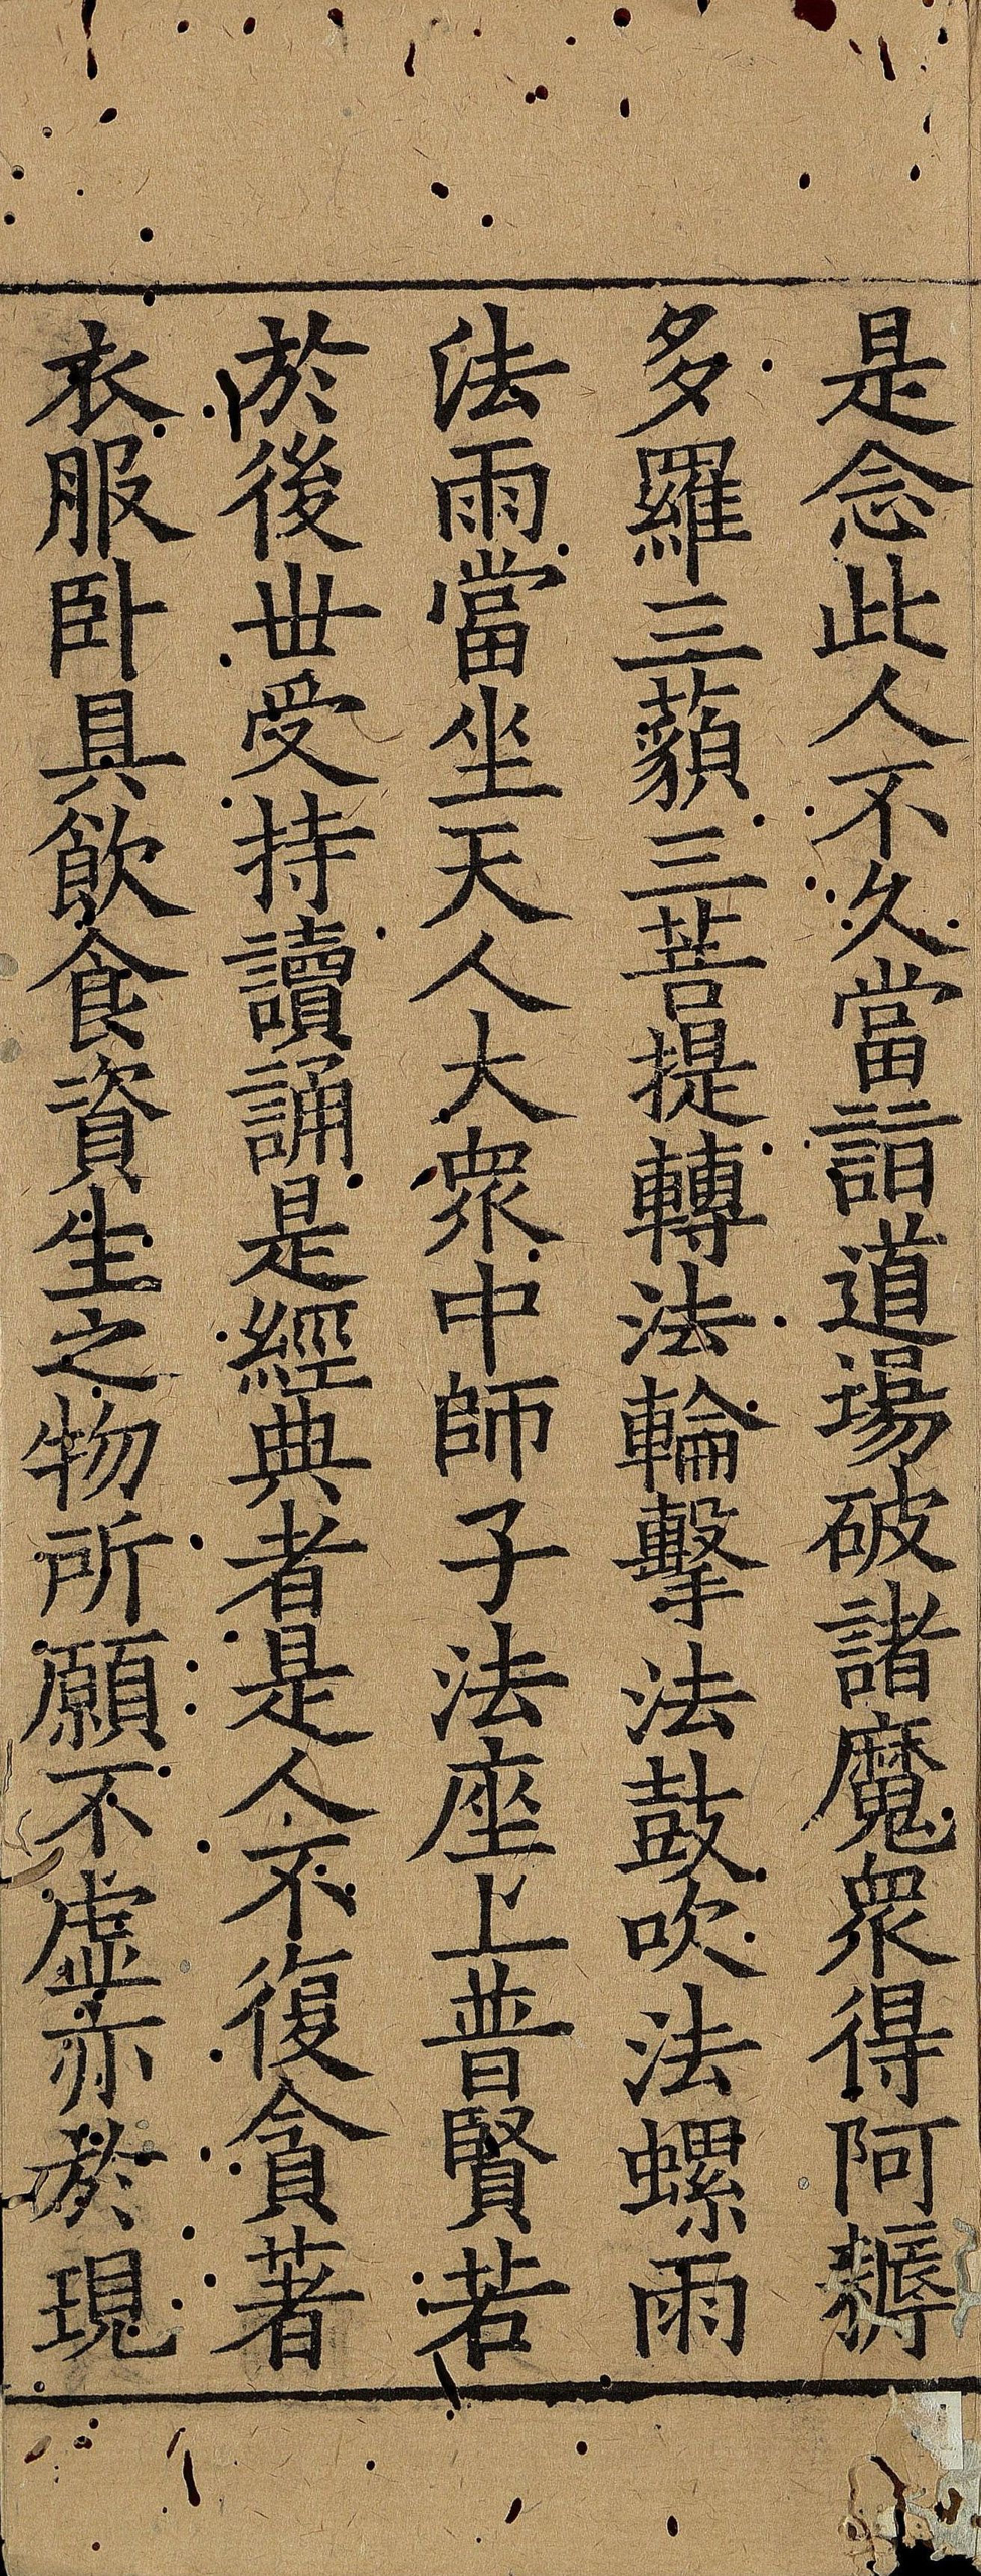 是念此人不久當詣道場破諸魔衆得阿耨
多羅三藐三菩提轉法輪擊法鼓吹法螺雨
法雨當坐天人大衆中師子法座上普賢若
於後世受持讀誦是經典者是人不復貪著
衣服卧具飲食資生之物所願不虛亦於現